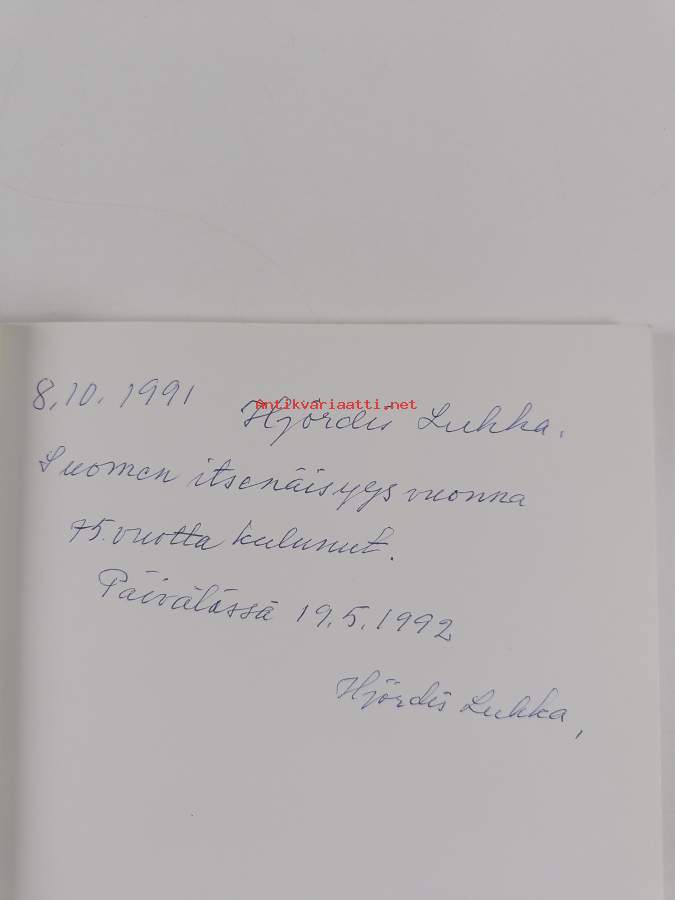 8.10.1991 Hjördis Luhka.
Antikvariaatti.net
Suomen itsenäisyys vuonna
75. vuotta kulunut.
Päivälässä 19.5.1992
Hjördis Luhka,